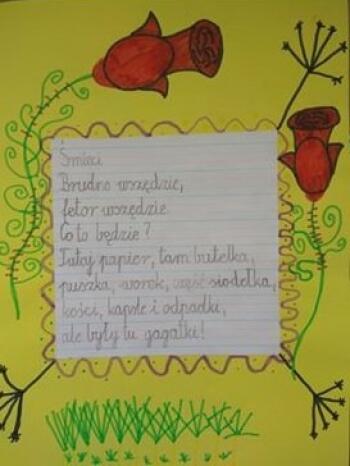 Śmieci
Brudno wszędzie,
fetor wszędzie
Co to będzie?
Tutaj papier, tam butelka,
puszka, worek, część siodełka,
kości, kapsle i odpadki,
ale były tu gagatki!